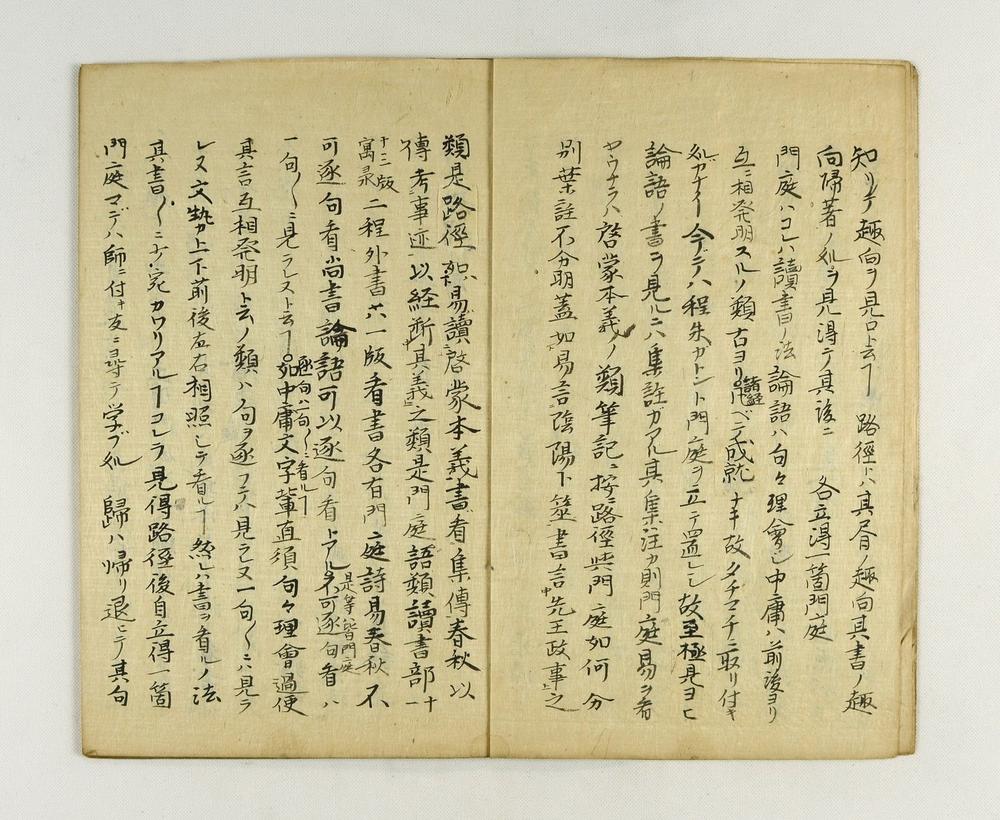 知リテ趣向ヲ見ロト云フ 路徑ハ其眉ノ趣向其書ノ趣
向帰著ノ処ヲ見得テ其後ニ 各立得一箇門庭
門庭ハコレハ讀書ノ法論語ハ句々理會シ中庸ハ前後ヨリ
互ニ相発明スルノ類古ヨリ諸経ベテ成就ナキ故タチマチニ取リ付キ
処ガナイ今デハ程朱ガトント門庭ヲ立テ置レシ故至極見ヨヒ
論語ノ書ヲ見ルニハ集註ガアル其集注ガ則門庭易ヲ看
ヤウナラハ啓蒙本義ノ類筆記ニ按ニ路徑与門庭如何分
別葉註不分明蓋如易言陰陽卜筮書言先王政事之
類是路徑如易讀啓蒙本義書看集傳春秋以
傳考事迹以経断其義之類是門庭語類讀書部十一
十三版寓录二程外書六一版看書各有門庭詩易春秋不
可逐句看尚書論語可以逐句看トアル不可逐句看ハ
是等皆門庭
一句〱ニ見ラレヌト云フ如中庸文字輩直須句々理會過便
逐句ハ一句〱ニ看ルフ
其言互相発明ト云ノ類ハ句ヲ逐フテハ見ラレヌ一句〱ニハ見ラ
レヌ文勢ガ上下前後左右相照シテ看ルフ 然レハ書ヲ看ルノ法
其書〱ニテ カワリアルフコレヲ見得路徑後自立得一箇
門庭マデハ師ニ付キ友ニ尋テ学ブ処 歸ハ帰リ退ヒテ其句